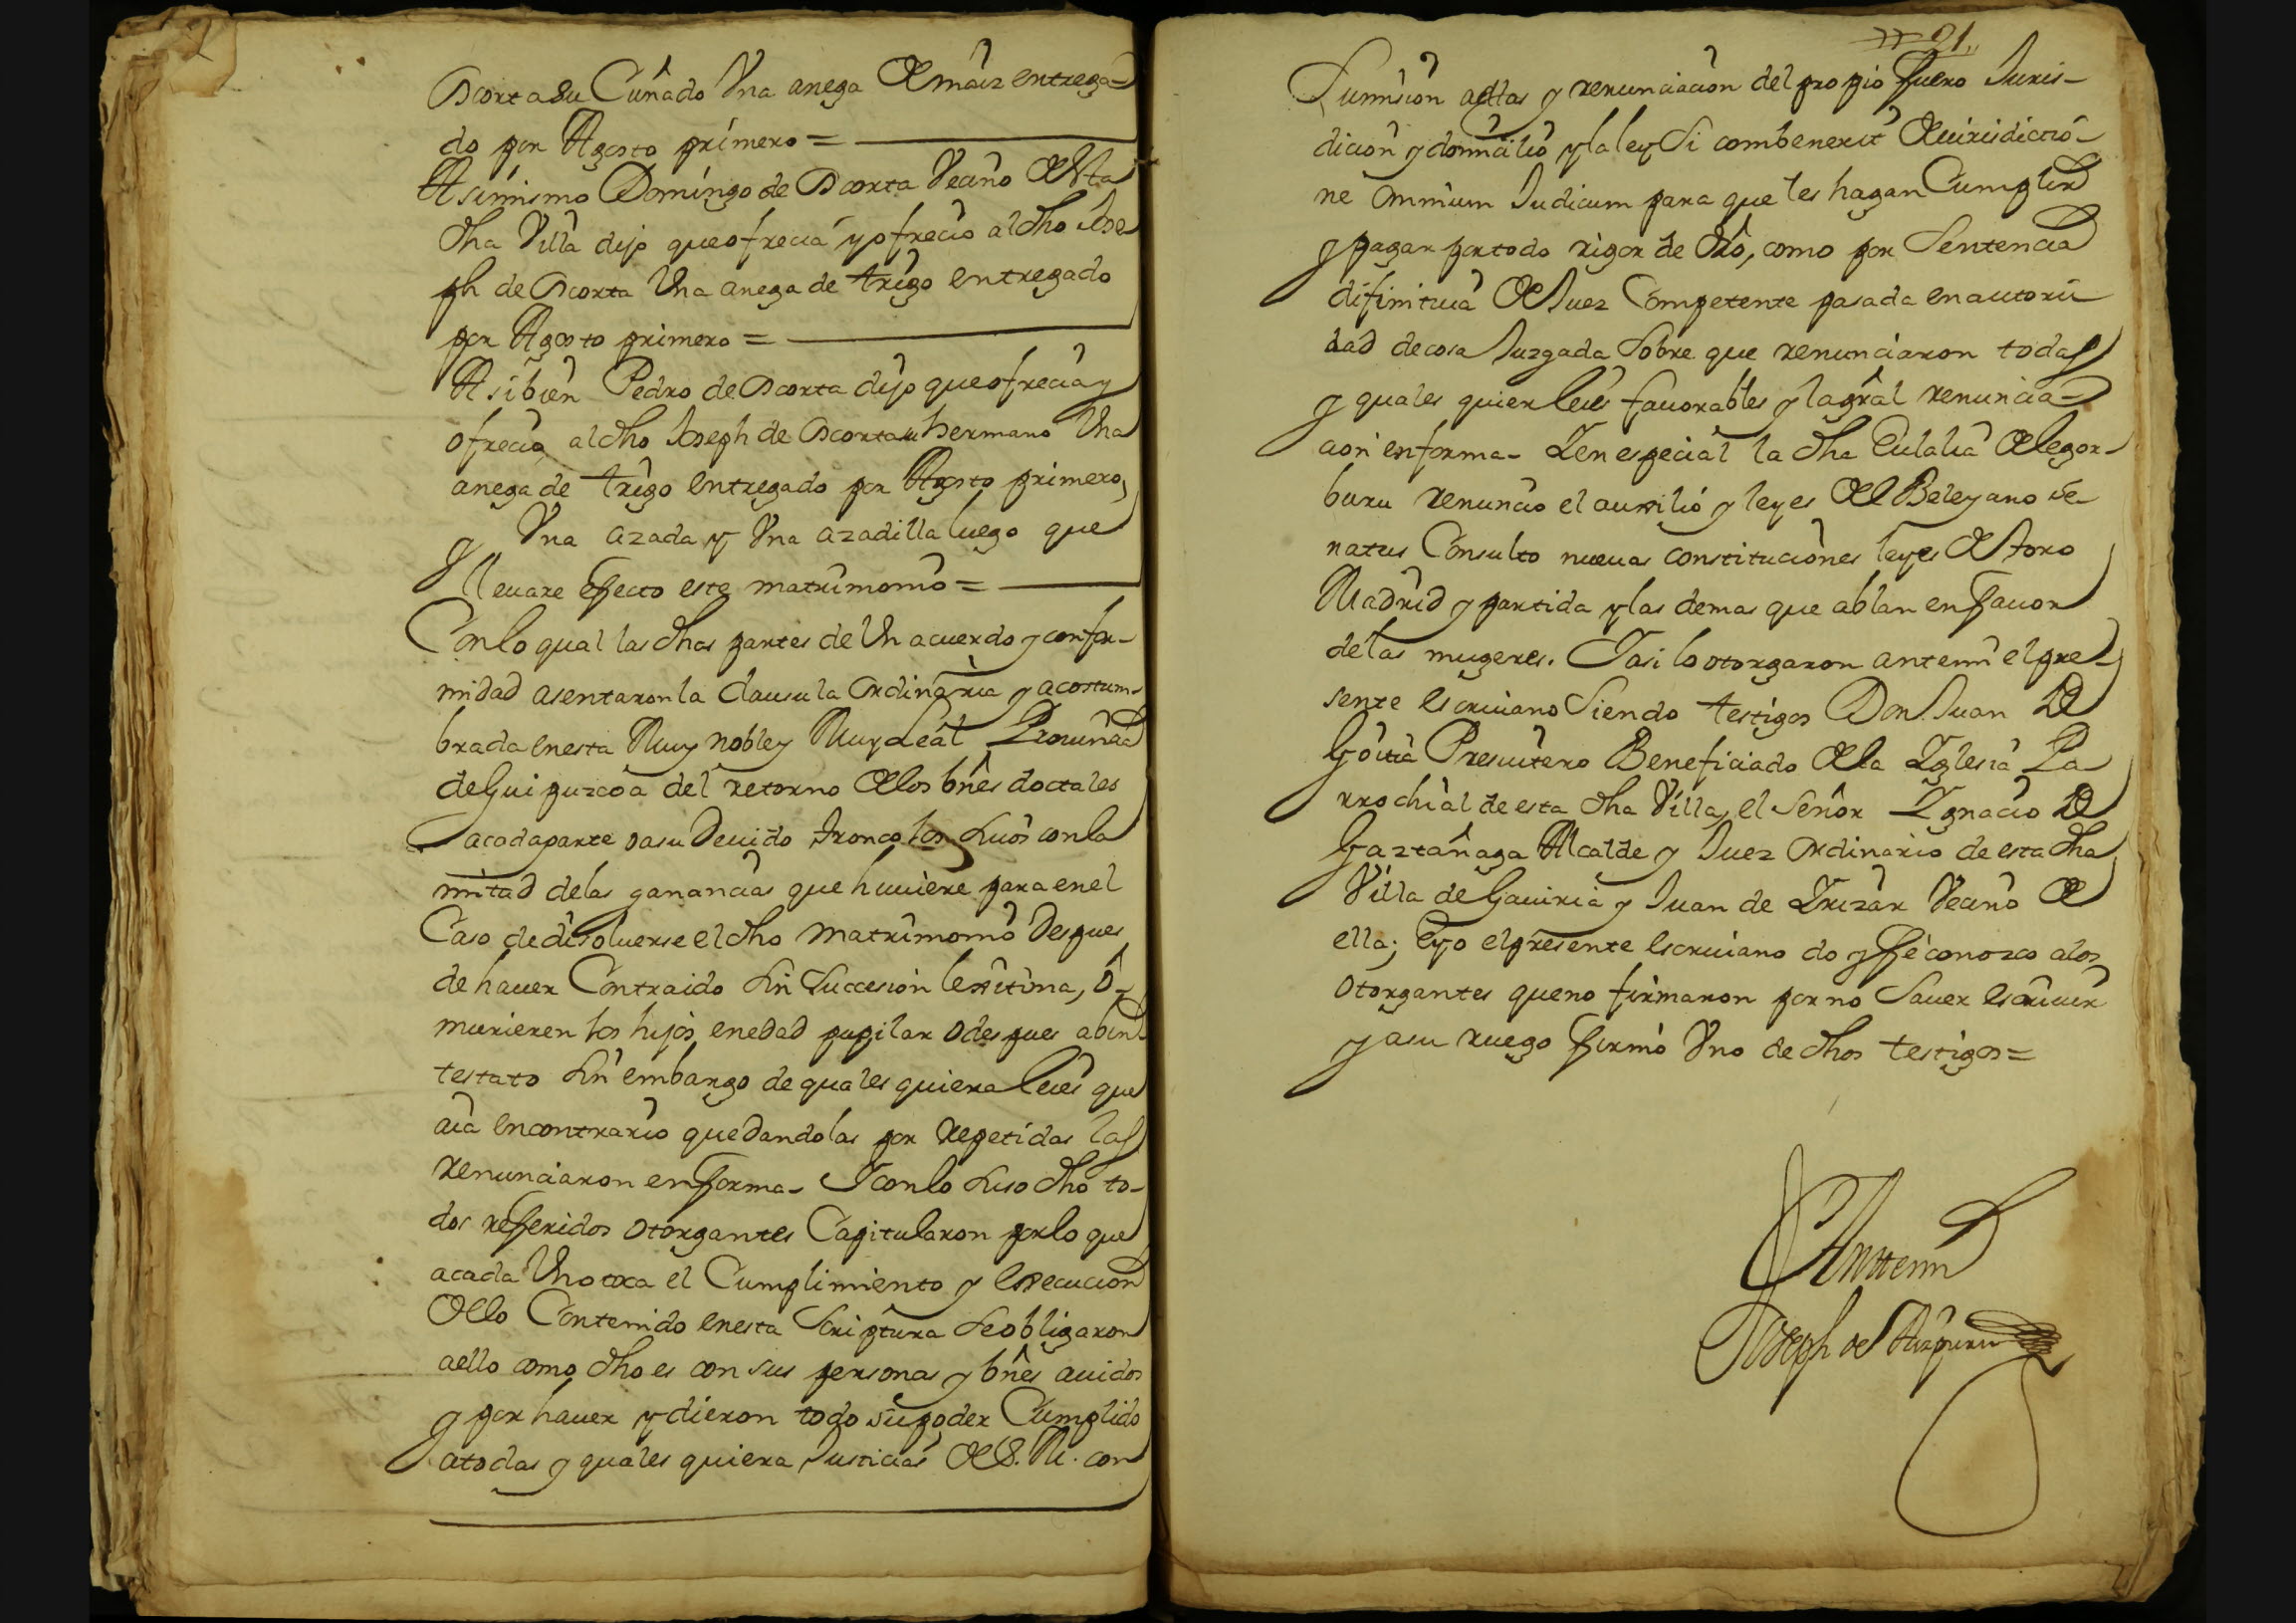 Ascorta su Cuñado Vna anega de maiz entrega-
do por Agosto primero =
Asimismo Domingo de Ascorta Vecino de esta
dha Villa dijo que ofrecia y ofrecio al dho Jose
ph de Ascorta Vna anega de trigo entregado
por Agosto primero =
Asi bien Pedro de Ascorta dijo que ofrecia y
ofrecio al dho Joseph de Ascorta su hermano Vna
anega de trigo entregado por Agosto primero,
y Vna azada y Vna azadilla luego que
lleuare efecto este matrimonio =
Con lo qual las dhas partes de Vn acuerdo y confor-
midad asentaron la clausula ordinaria y acostum-
brada en esta Muy noble y Muy Leal Prouincia
de Guipuzcoa del retorno de los bnes doctales
a coda parte o a su Deuido tronco los suios con la
mitad de las ganancias que huuiere para en el
Caso de disoluerse el dho matrimonio Despues
de hauer Contraido sin Succesion lexitima, ô
murieren los hijos en edad pupilar o despues abin
testato sin embargo de quales quiera leies que
aia en contrario quedandolas por repetidas las
renunciaron en forma- Y con lo suso dho to-
dos referidos otorgantes Capitularon por lo que
a cada Vno toca el Cumplimiento y execucion
de lo Contenido en esta Scriptura se obligaron
a ello como dho es con sus personas y bnes auidos
y por hauer y dieron todo su poder Cumplido
a todas y quales quiera Justicias de S. M. con
91
Sumision a ellas y renunciacion del propio fuero Juris-
dicion y domicilio y la ley Si combenerit de iurisdictio-
ne omnium Judicum para que les hagan Cumplir
y pagar por todo rigor de dro, como por Sentencia
difinitiua de Juez Competente pasada en autori-
dad de cosa Juzgada Sobre que renunciaron todas
y quales quier leies fauorables y la gral renuncia-
cion en forma- Y en especial la dha Eulalia de legor-
buru renuncio el auxilio y leyes del Beleyano se
natus Consulto nueuas constituciones leyes de toro
Madrid y partida y las demas que ablan en fauor
de las mugeres. Y asi lo otorgaron ante mi el pre-
sente escriuano Siendo testigos Don Juan de
Goitia Presuitero Beneficiado de la Yglesia Pa
rrochial de esta dha Villa, el Señor Ygnacio de
Gaztañaga Alcalde y Juez ordinario de esta dha
Villa de Gauiria y Juan de Yrizar Vecino de
ella; E yo el presente escriuano doy fé conozco a los
otorgantes que no firmaron por no Sauer escriuir
y a su ruego firmó Vno de dhos testigos =
Ante mi
Joseph de Aizpuru